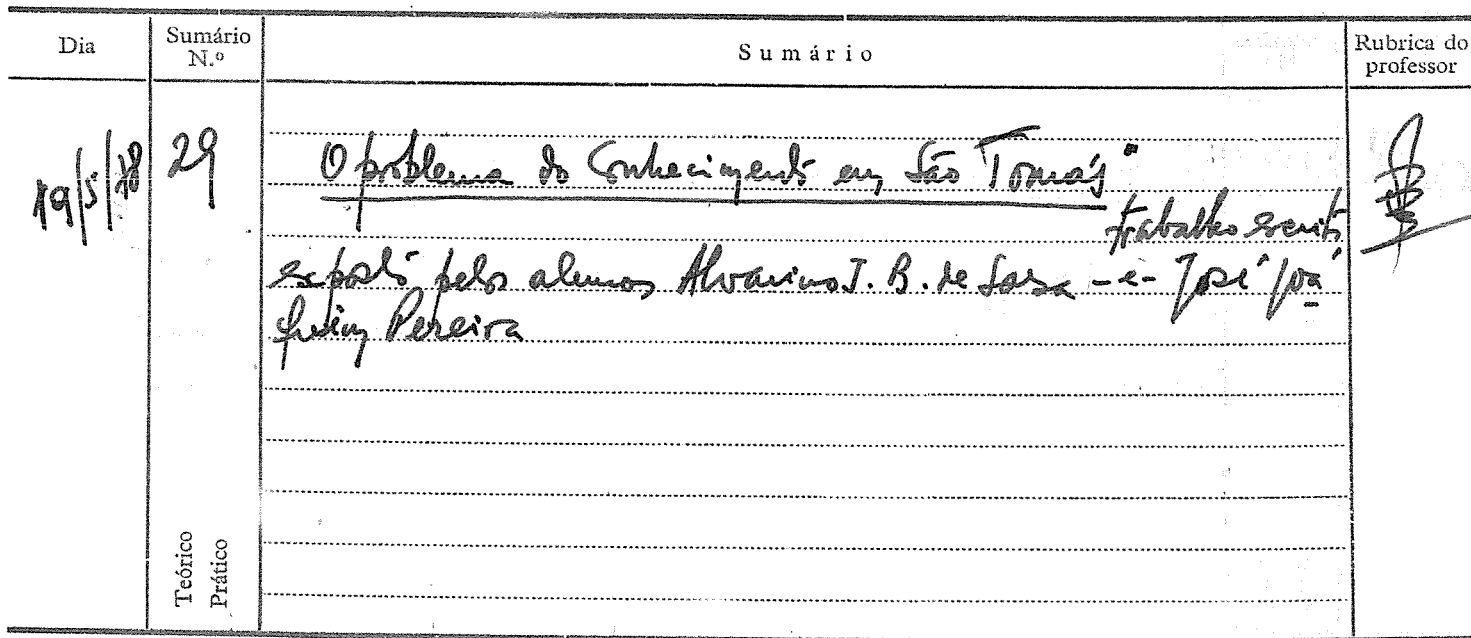 Dia
Sumário N.º
Sumário
Rubrica do professor
19/5/78
29
O problema do Conhecimento em São Tomás"
trabalho escrito
exposto pelos alunos Alvarino J. B. de Sousa - e - José Joa
quim Pereira
Teórico
Prático